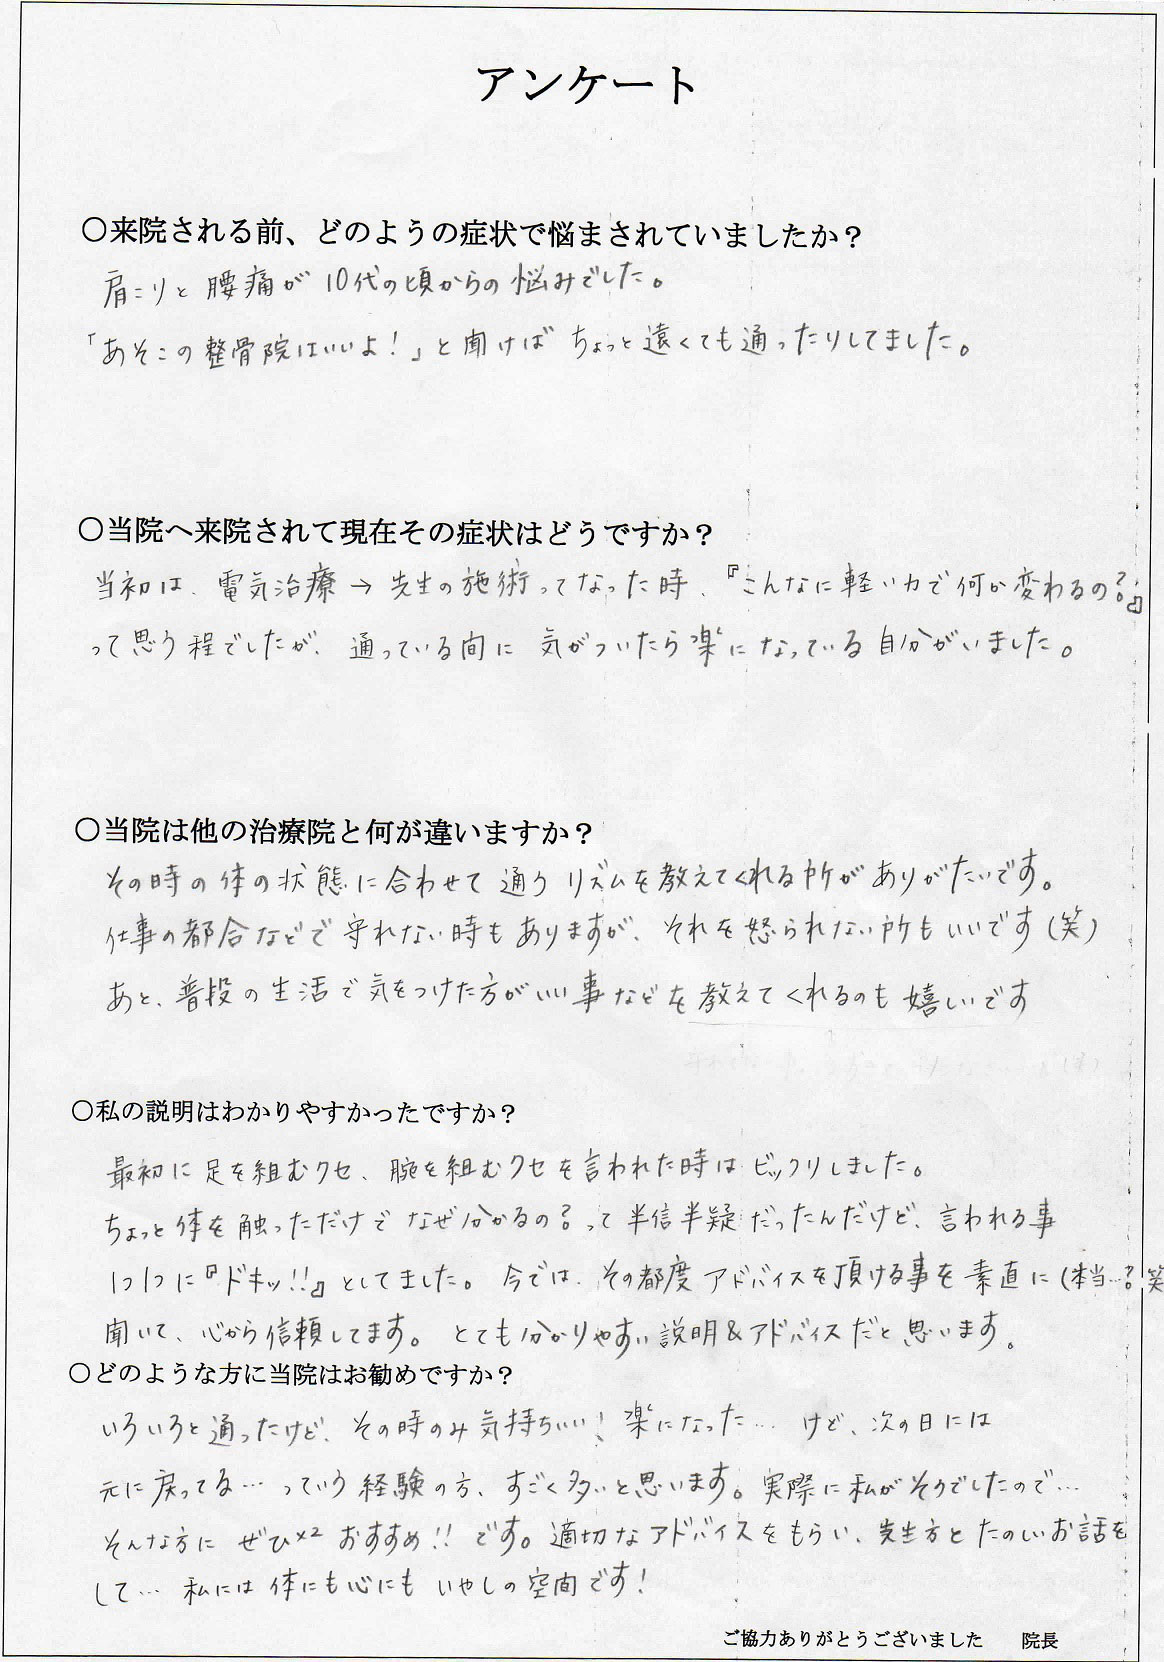 アンケート
〇来院される前、どのようの症状で悩まされていましたか？
肩こりと腰痛が10代の頃からの悩みでした。
「あそこの整骨院はいいよ！」と聞けばちょっと遠くても通ったりしてました。
〇当院へ来院されて現在その症状はどうですか？
当初は、電気治療→先生の施術ってなった時、『こんなに軽い力で何か変わるの？』
って思う程でしたが、通っている間に気がついたら楽になっている自分がいました。
〇当院は他の治療院と何が違いますか？
その時の体の状態に合わせて通うリズムを教えてくれる所がありがたいです。
仕事の都合などで守れない時もありますが、それを怒られない所もいいです（笑）
あと、普段の生活で気をつけた方がいい事などを教えてくれるのも嬉しいです
〇私の説明はわかりやすかったですか？
最初に足を組むクセ、腕を組むクセを言われた時はビックリしました。
ちょっと体を触っただけでなぜ分かるの？って半信半疑だったんだけど、言われる事
1つ1つに『ドキッ!!』としてました。今では、その都度アドバイスを頂ける事を素直に（本当…？笑
聞いて、心から信頼してます。とても分かりやすい説明＆アドバイスだと思います。
〇どのような方に当院はお勧めですか？
いろいろと通ったけど、その時のみ気持ちいい！楽になった…けど、次の日には
元に戻ってる…っていう経験の方、すごく多いと思います。実際に私がそうでしたので…
そんな方にぜひ×2おすすめ!!です。適切なアドバイスをもらい、先生方とたのしいお話を
して…私には体にも心にもいやしの空間です！
ご協力ありがとうございました　院長